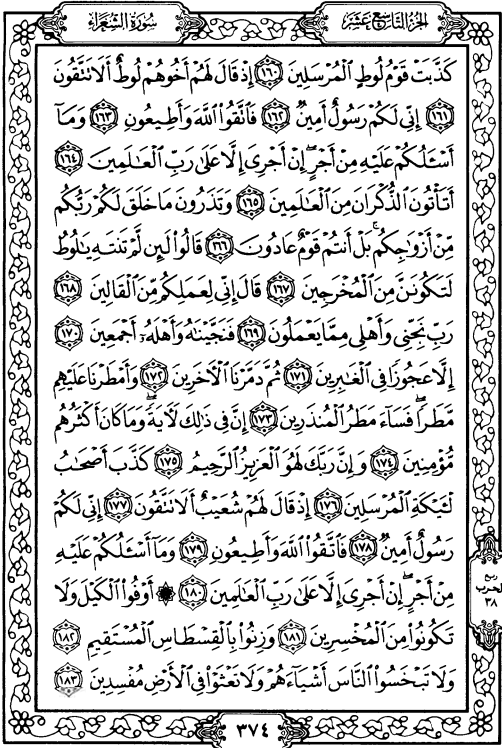 سُورَةُ الشُّعَرَاءِ
الجُزْءُ التَّاسِعَ عَشَرَ
كَذَّبَتْ قَوْمُ لُوطٍ الْمُرْسَلِينَ ١٦٠ إِذْ قَالَ لَهُمْ أَخُوهُمْ لُوطٌ أَلَا تَتَّقُونَ
١٦١ إِنِّي لَكُمْ رَسُولٌ أَمِينٌ ١٦٢ فَاتَّقُوا اللَّهَ وَأَطِيعُونِ ١٦٣ وَمَآ
أَسْـَٔلُكُمْ عَلَيْهِ مِنْ أَجْرٍ ۖ إِنْ أَجْرِىَ إِلَّا عَلَىٰ رَبِّ الْعَـٰلَمِينَ ١٦٤
أَتَأْتُونَ الذُّكْرَانَ مِنَ الْعَـٰلَمِينَ ١٦٥ وَتَذَرُونَ مَا خَلَقَ لَكُمْ رَبُّكُم
مِّنْ أَزْوَٰجِكُم ۚ بَلْ أَنتُمْ قَوْمٌ عَادُونَ ١٦٦ قَالُوا لَئِن لَّمْ تَنتَهِ يَـٰلُوطُ
لَتَكُونَنَّ مِنَ الْمُخْرَجِينَ ١٦٧ قَالَ إِنِّي لِعَمَلِكُم مِّنَ الْقَالِينَ ١٦٨
رَبِّ نَجِّنِي وَأَهْلِي مِمَّا يَعْمَلُونَ ١٦٩ فَنَجَّيْنَـٰهُ وَأَهْلَهُۥٓ أَجْمَعِينَ ١٧٠
إِلَّا عَجُوزًا فِي الْغَـٰبِرِينَ ١٧١ ثُمَّ دَمَّرْنَا الْـَٔاخَرِينَ ١٧٢ وَأَمْطَرْنَا عَلَيْهِم
مَّطَرًا ۖ فَسَآءَ مَطَرُ الْمُنذَرِينَ ١٧٣ إِنَّ فِي ذَٰلِكَ لَـَٔايَةً ۖ وَمَا كَانَ أَكْثَرُهُم
مُّؤْمِنِينَ ١٧٤ وَإِنَّ رَبَّكَ لَهُوَ الْعَزِيزُ الرَّحِيمُ ١٧٥ كَذَّبَ أَصْحَـٰبُ
لْـَٔيْكَةِ الْمُرْسَلِينَ ١٧٦ إِذْ قَالَ لَهُمْ شُعَيْبٌ أَلَا تَتَّقُونَ ١٧٧ إِنِّي لَكُمْ
رَسُولٌ أَمِينٌ ١٧٨ فَاتَّقُوا اللَّهَ وَأَطِيعُونِ ١٧٩ وَمَآ أَسْـَٔلُكُمْ عَلَيْهِ
مِنْ أَجْرٍ ۖ إِنْ أَجْرِىَ إِلَّا عَلَىٰ رَبِّ الْعَـٰلَمِينَ ١٨٠ ۞ أَوْفُوا الْكَيْلَ وَلَا
تَكُونُوا مِنَ الْمُخْسِرِينَ ١٨١ وَزِنُوا بِالْقِسْطَاسِ الْمُسْتَقِيمِ ١٨٢
وَلَا تَبْخَسُوا النَّاسَ أَشْيَآءَهُمْ وَلَا تَعْثَوْا فِي الْأَرْضِ مُفْسِدِينَ ١٨٣
ربع
الحزب
٣٨
٣٧٤